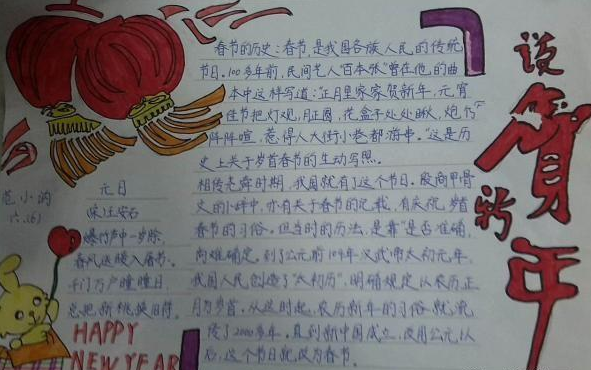 春节的历史:春节,是我国各族人民的传统
节日。100多年前,民间艺人"百本张"曾在他的曲
本中这样写道:"正月里家家贺新年,元宵
佳节把灯观,月正圆,花盒子处处瞅,炮竹
阵阵喧,惹得人大街小巷都游串。"这是历
史上关于岁首春节的生动写照。
相传尧舜时期,我国就有了这个节日。殷商甲骨
文的小碎中,亦有关于春节的记载,有庆祝岁首
春节的习俗。但当时的历法,是靠是否准确,
尚难确定。到了公元前104年汉武帝太初元年,
我国人民创造了"太初历",明确规定以农历正
月为岁首。从这时起,农历新年的习俗就流
传了2000多年。直到新中国成立,改用公元以
后,这个节日就改为春节。
说
贺
新
年
范小
六.(6)
元日
宋 王安石
爆竹声中一岁除,
春风送暖入屠苏。
千门万户曈曈日,
总把新桃换旧符。
HAPPY
NEW YEAR